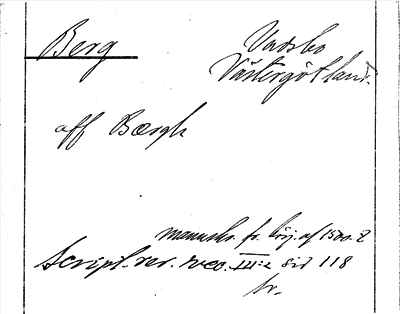 Berg
Vadsbo
Västergötland.
aff Bærgh
manuskr. fr. börj. af 1500. t
Script. rer. svec. III:2 sid 118
br.